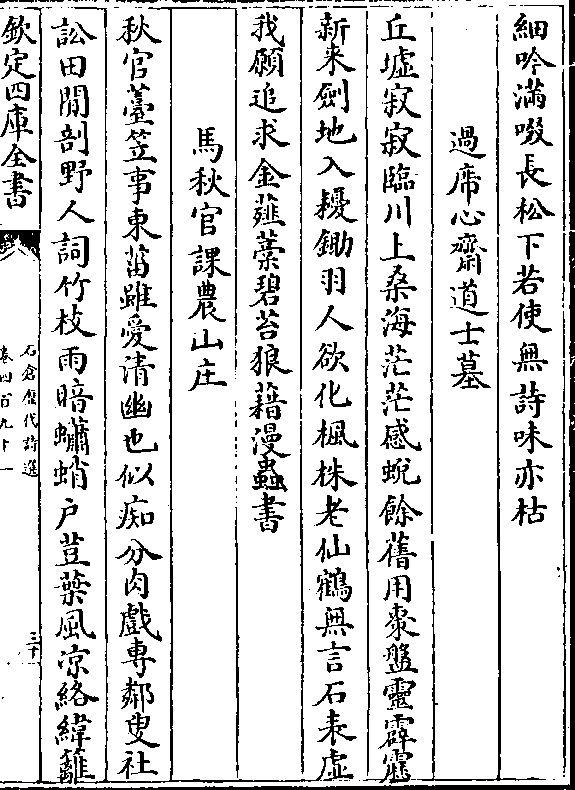 細吟滿啜長松下若使無詩味亦枯
過席心齋道士墓
丘墟寂寂臨川上桑海茫茫感蛻餘舊用棗盤靈霹靂
新来劍地入耰鋤羽人欲化楓株老仙鶴無言石表虛
我願追求金薤藁碧苔狼藉漫蟲書
馬秋官課農山庄
秋官薹笠事東菑雖愛清幽也似痴分肉戲専鄰叟社
訟田閒剖野人詞竹枝雨暗蠨蛸户荳葉風凉絡緯籬
欽定四庫全書
石倉歷代詩選
卷四百九十一
三十